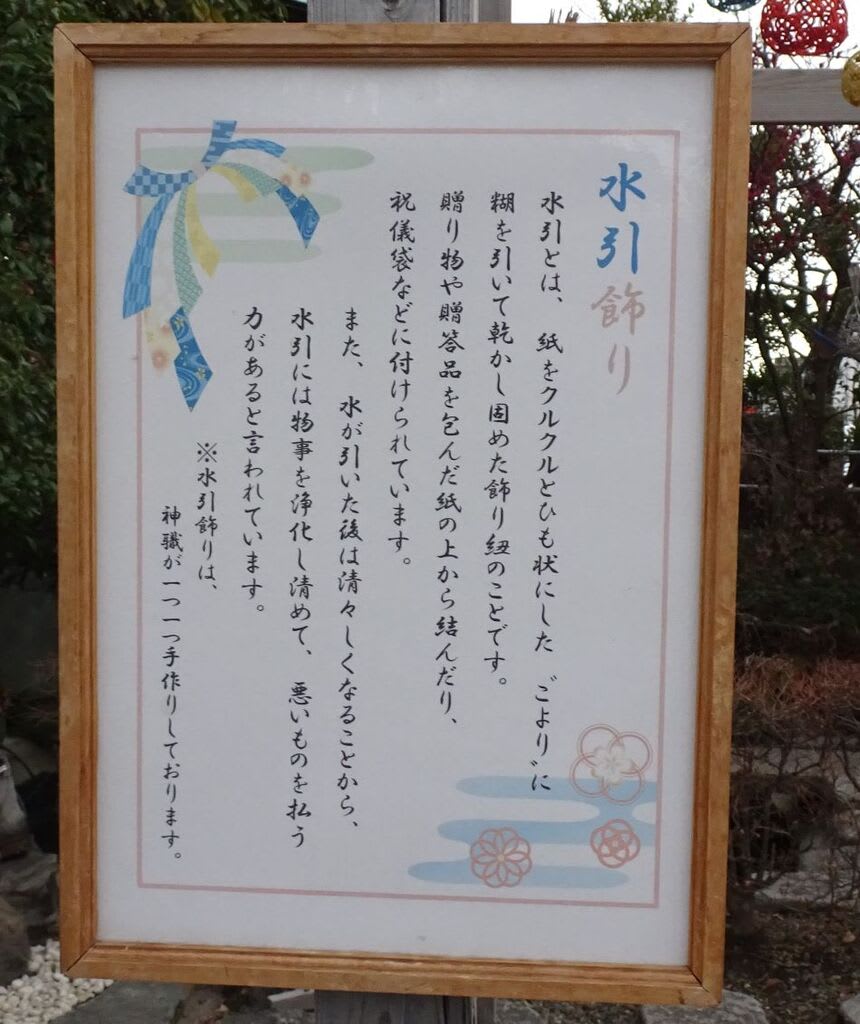 水引飾り
水引とは、紙をクルクルとひも状にした〝こより〟に
糊を引いて乾かし固めた飾り紐のことです。
贈り物や贈答品を包んだ紙の上から結んだり、
祝儀袋などに付けられています。
また、水が引いた後は清々しくなることから、
水引には物事を浄化し清めて、悪いものを払う
力があると言われています。
※水引飾りは、
神職が一つ一つ手作りしております。